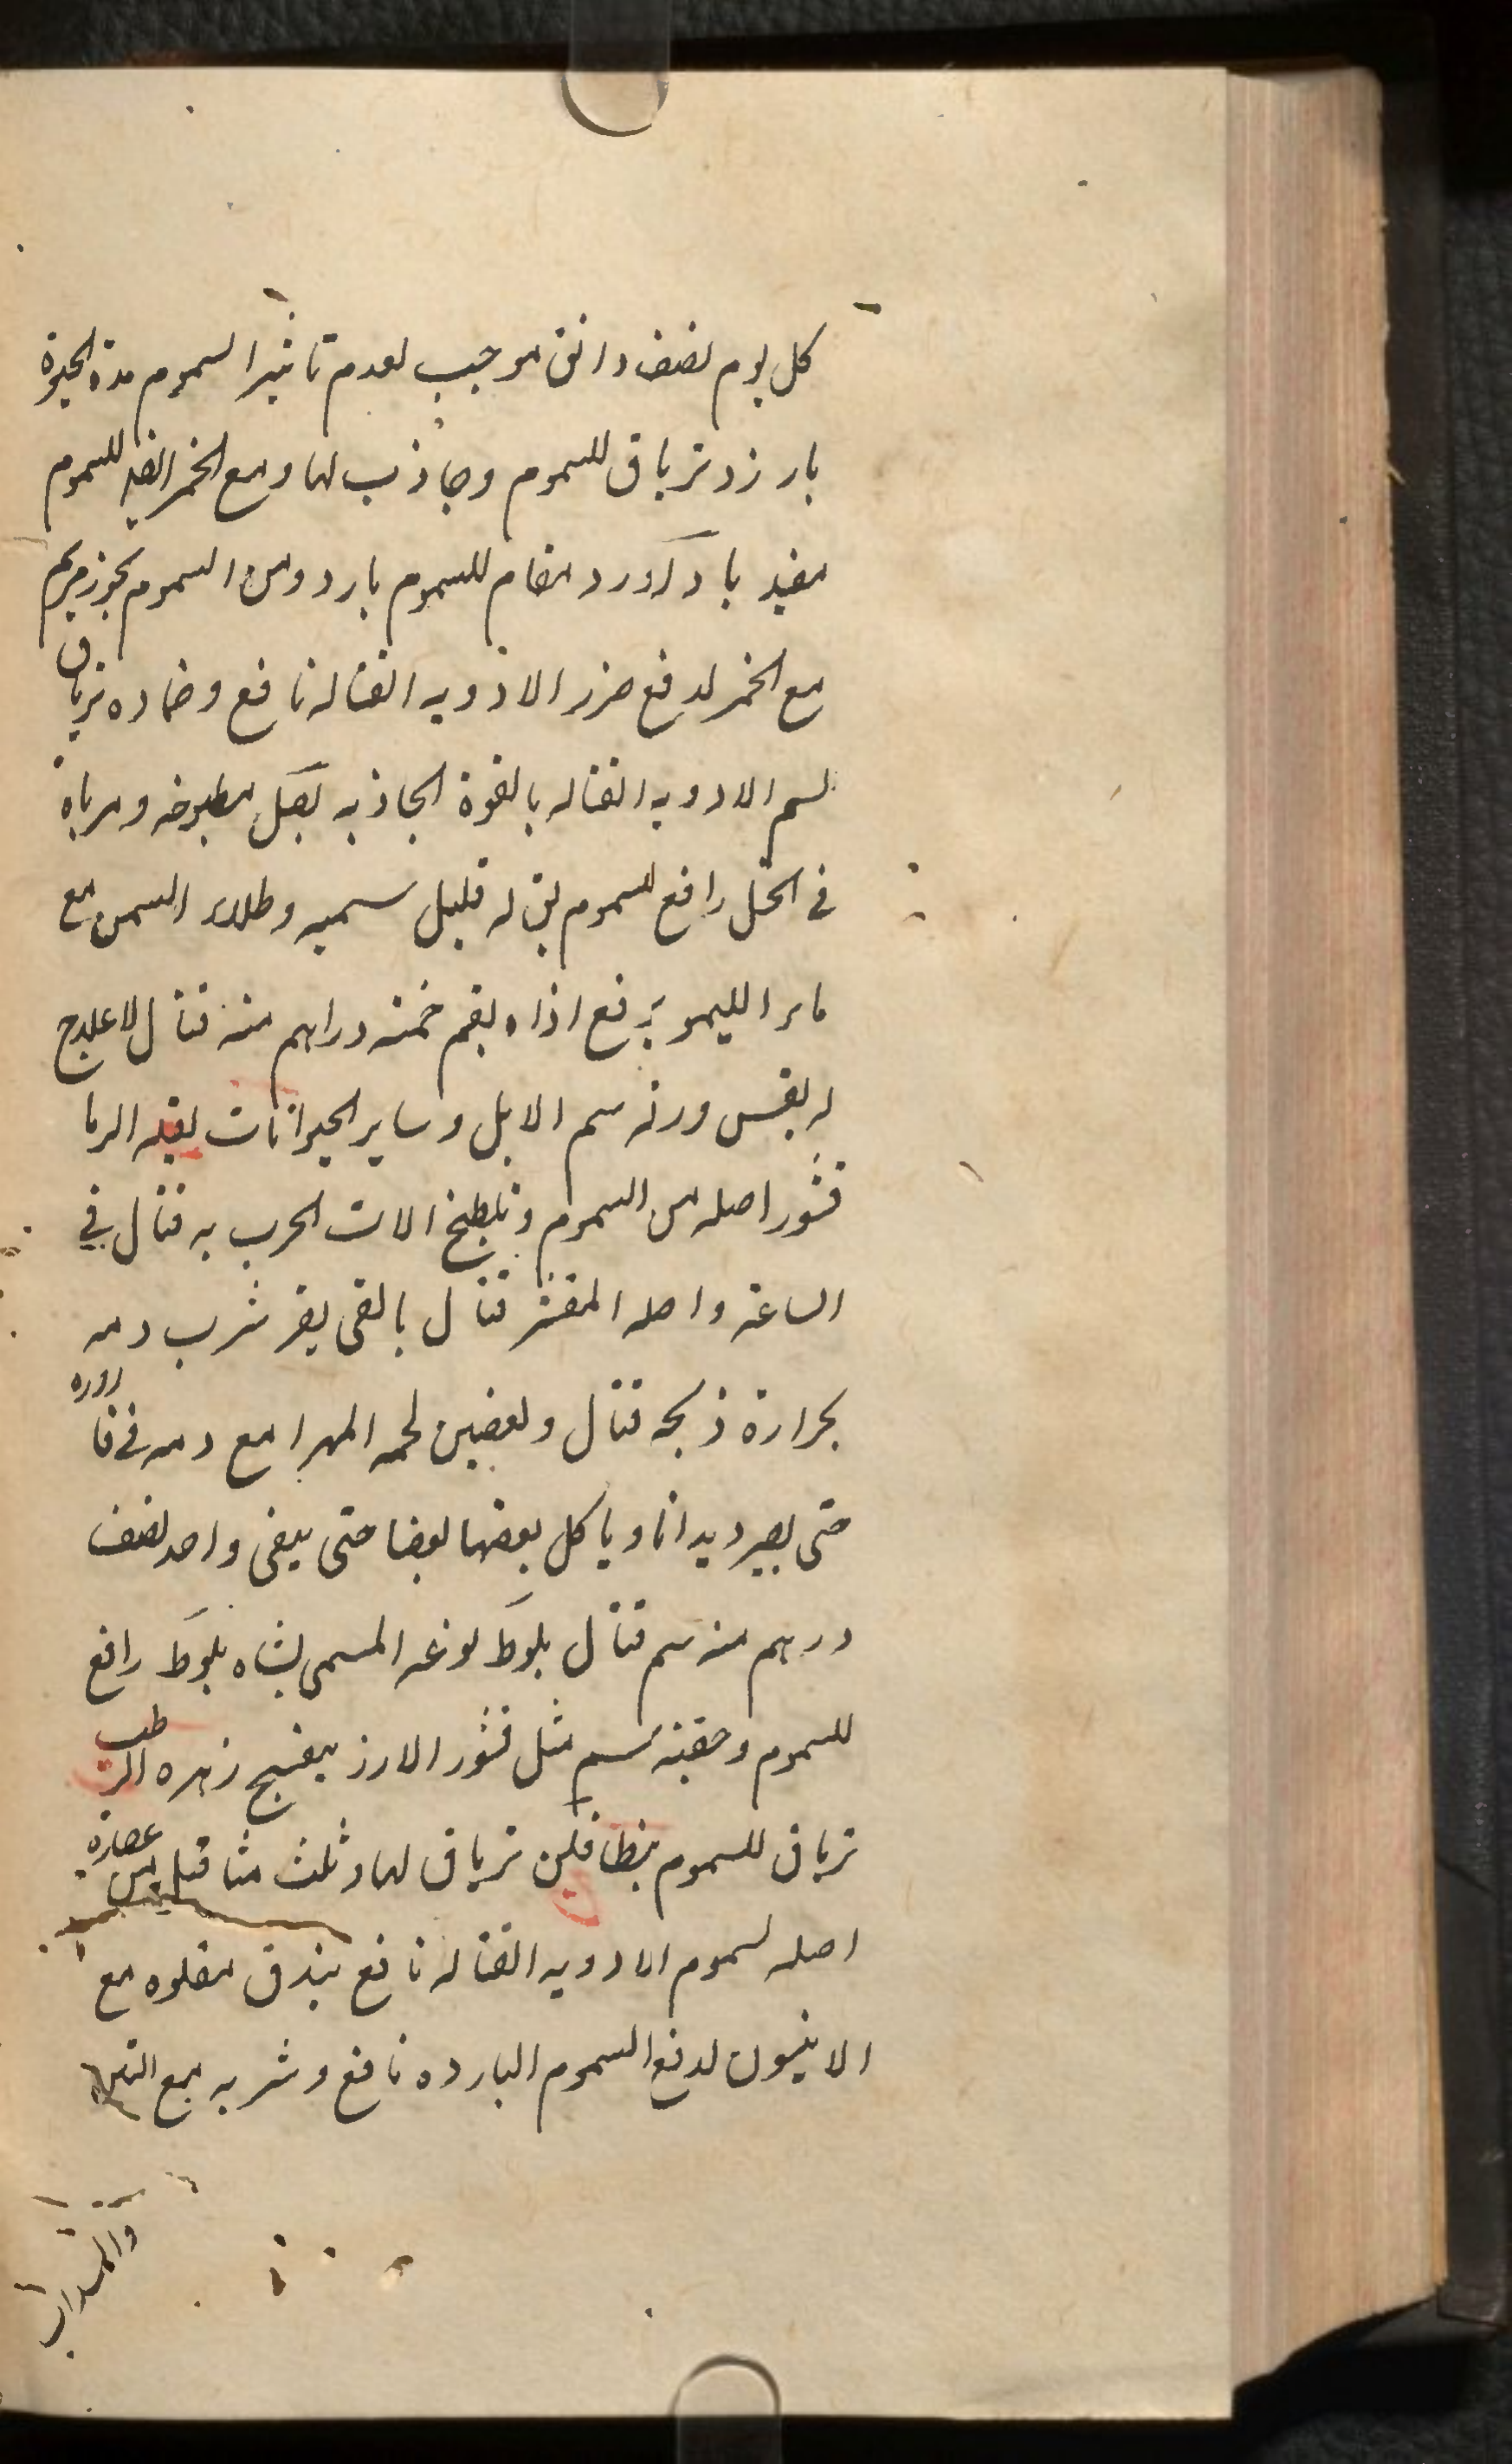 كل يوم نصف دانق موجب لعدم تاثير السموم مدة الحيوة
بارزد ترياق للسموم وجاذب لها ومع الخمر ايضا للسموم
مفيد بادآورد مقام للسموم بارد ومن السموم بخور مريم
مع الخمر لدفع ضرر الادويه القتاله نافع وضماده ترياق
لسم الادويه القتاله بالقوة الجاذبه بصل مطبوخه ومرباه
في الخل رافع للسموم له قليل سميه وطلاء السمن مع
ماء الليمو يرفع اذاه بقم خمسة دراهم منه قتال لا علاج
له بقس ورقه سم الابل وساير الحيوانات بقلة الرما
قشور اصله من السموم وتلطيخ الات الحرب به قتال في
الساعة واصله المقشر قتال بالقى بقر شرب دمه
بحرارة ذبحه قتال وتعفين لحمه المهرا مع دمه في قاروره
حتى يصير ديدانا وياكل بعضها بعضا حتى يبقى واحد نصف
درهم منه سم قتال بلوط نوعه المسمى بشاه بلوط رافع
للسموم وحقنة سم مثل قشور الارز بنفسج زهره الرطب
ترياق للسموم بنطافلن ترياق لها وثلث مثاقيل من عصارة
اصله لسموم الادويه القتاله نافع بندق مقلوه مع
الانيسون لدفع السموم البارده نافع وشربه مع التين
والسداب